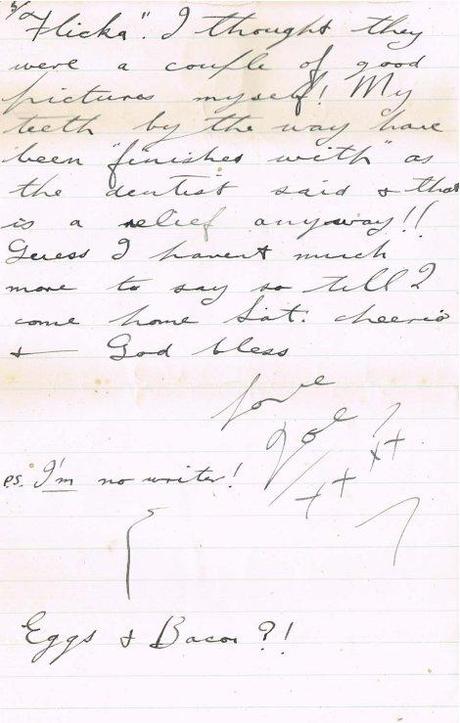 Flicka". I thought they
were a couple of good
pictures myself! My
teeth by the way have
been "finished with" as
the dentist said & that
is a relief anyway!!
Guess I havent much
more to say so till I
come home Sat: cheerio
& God bless
love
Joe
xx
xx
P.S. I'm no writer!
Eggs & Bacon ?!